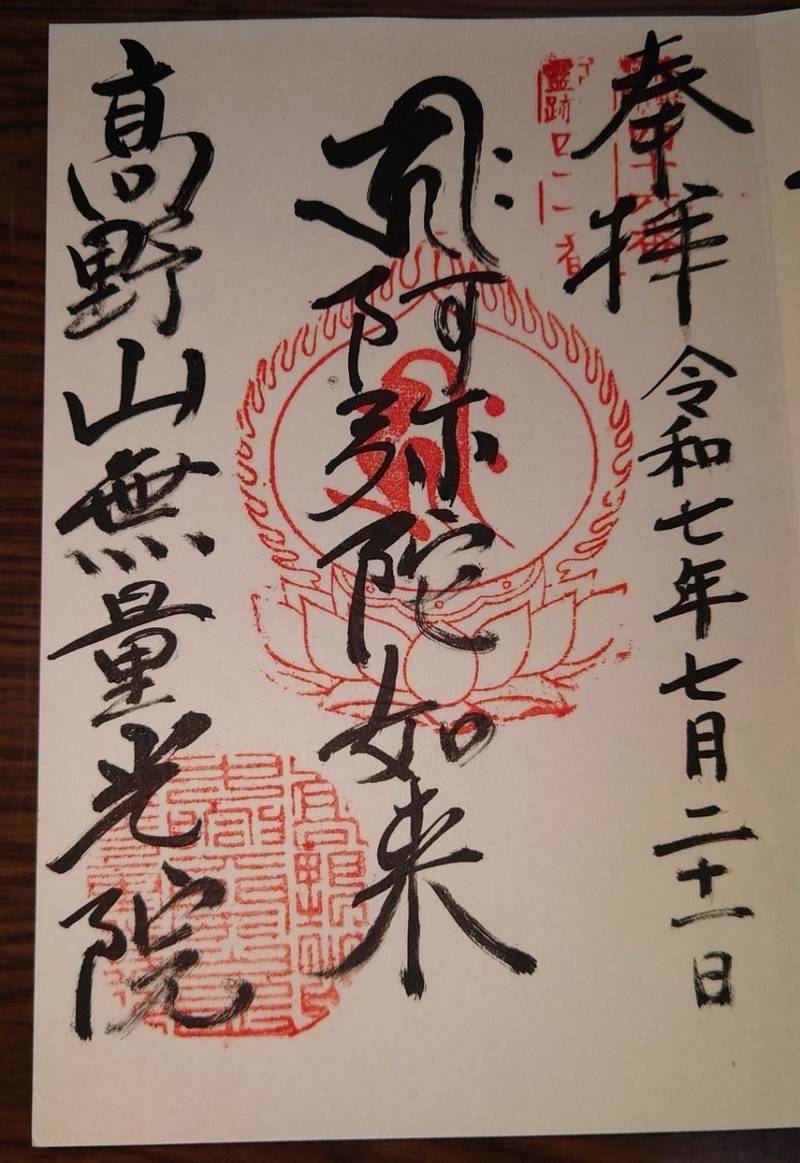 奉拝
令和七年七月二十一日
阿弥陀如来
高野山無量光院